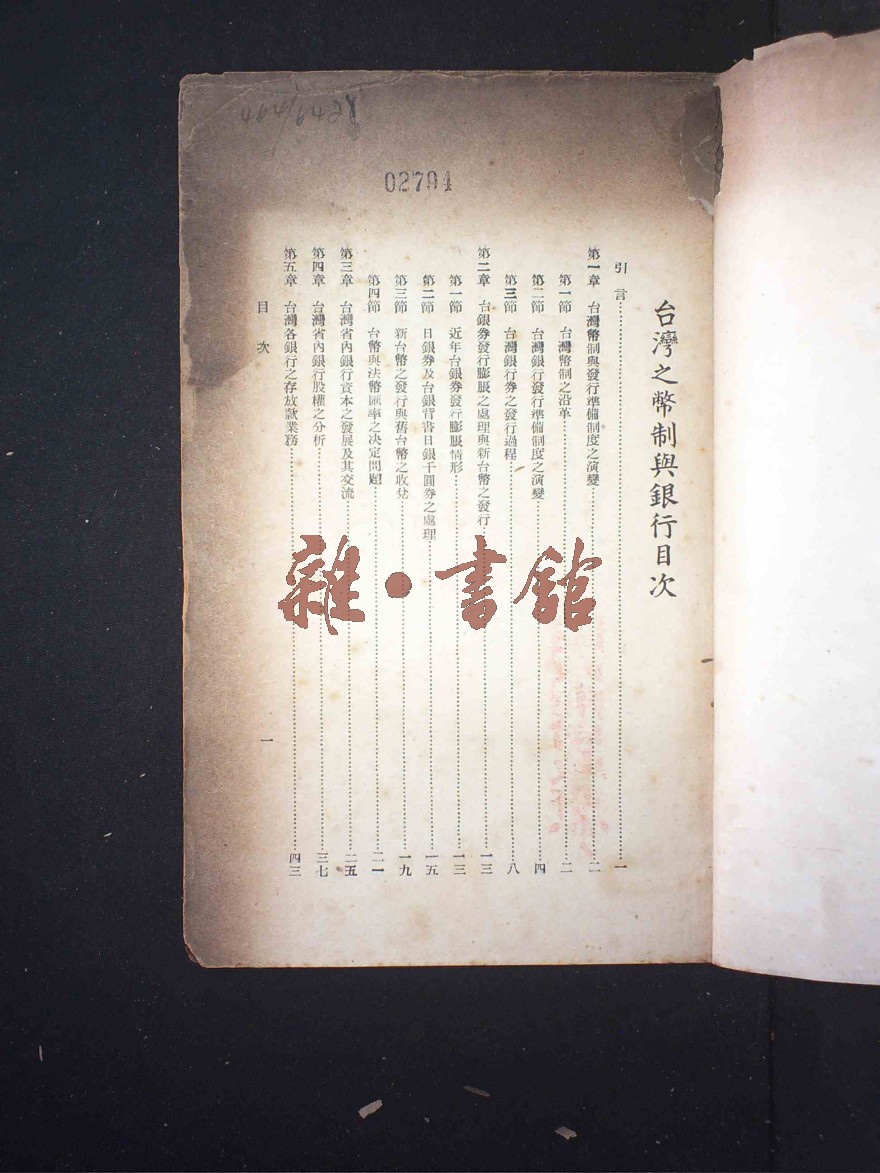 02794
台灣之幣制與銀行目次
引言……一
第一章 台灣幣制與發行準備制度之演變……二
第一節 台灣幣制之沿革……二
第二節 台灣銀行發行準備制度之演變……四
第三節 台灣銀行券之發行過程……八
第二章 台銀券發行膨脹之處理與新台幣之發行……一三
第一節 近年台銀券發行膨脹情形……一三
第二節 日銀券及台銀背書日銀千圓券之處理……一五
第三節 新台幣之發行與舊台幣之收兌……一九
第四節 台幣與法幣匯率之决定問題……二一
第三章 台灣省內銀行資本之發展及其交流……二五
第四章 台灣省內銀行股權之分析……三七
第五章 台灣各銀行之存放款業務……四三
目次
一
雜·書館